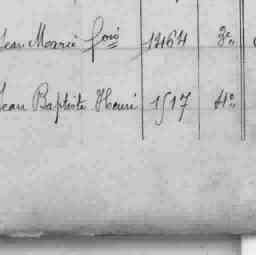 Jean Marie fois 1464 3e
Jean Baptiste Henri 1517 4e